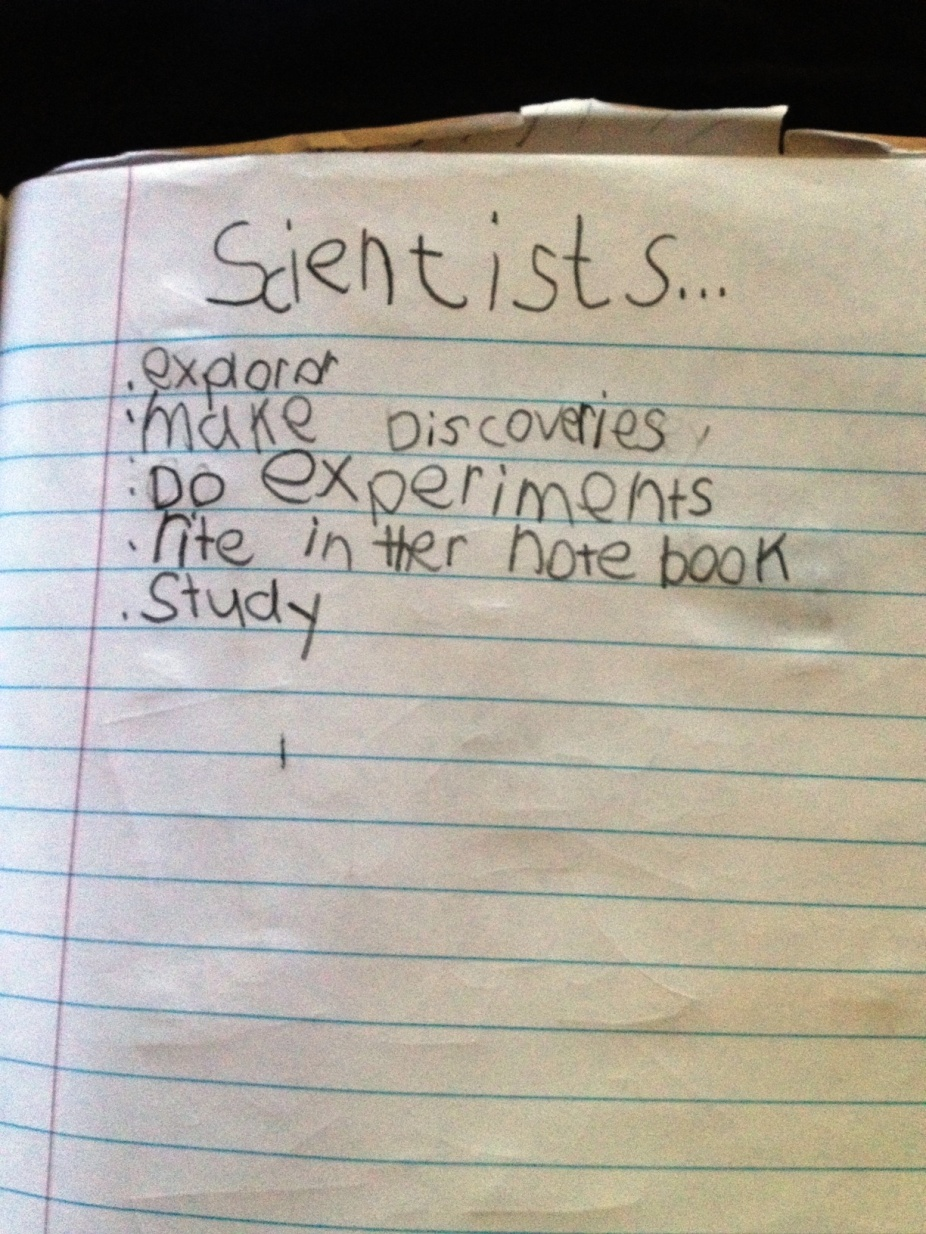 Scientists...
. explorar
. make Discoveries
. Do experiments
. rite in ther note book
. Study